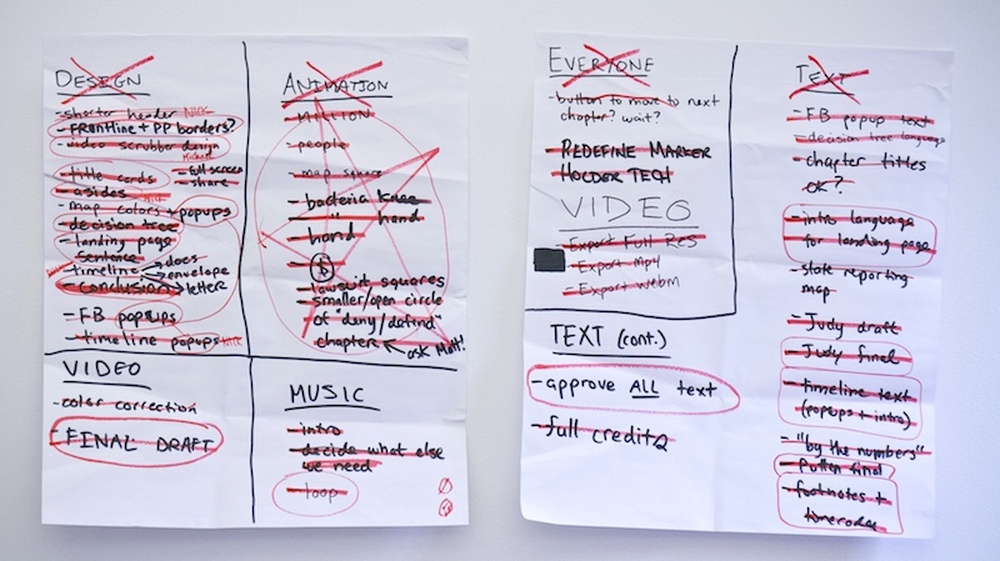 DESIGN
- shorter header NICK
- FRONTLINE + PP borders?
- video scrubber design
Michael
- title cards
- full screen
- share
- asides
- map colors + popups
- decision tree
- landing page
sentence
- timeline → docs
→ envelope
→ letter
- conclusion
- FB popups
- timeline popups
VIDEO
- color correction
- FINAL DRAFT
ANIMATION
- MILLION
- people
- map square
- bacteria knee
" hand
- hand
- $
- lawsuit squares
- smaller/open circle
of "deny/defend"
chapter ← ask Matt!
MUSIC
- intro
- decide what else
we need
- loop
EVERYONE
- button to move to next
chapter? wait?
- REDEFINE MARKER
HOLDER TECH
VIDEO
- Export Full Res
- Export mp4
- Export webm
TEXT (cont.)
- approve ALL text
- full credits
TEXT
- FB popup text
- decision tree language
- chapter titles
OK?
- intro language
for landing page
- state reporting
map
- Judy draft
- Judy final
- timeline text
(popups + intro)
- "by the numbers"
- Putten final
- footnotes +